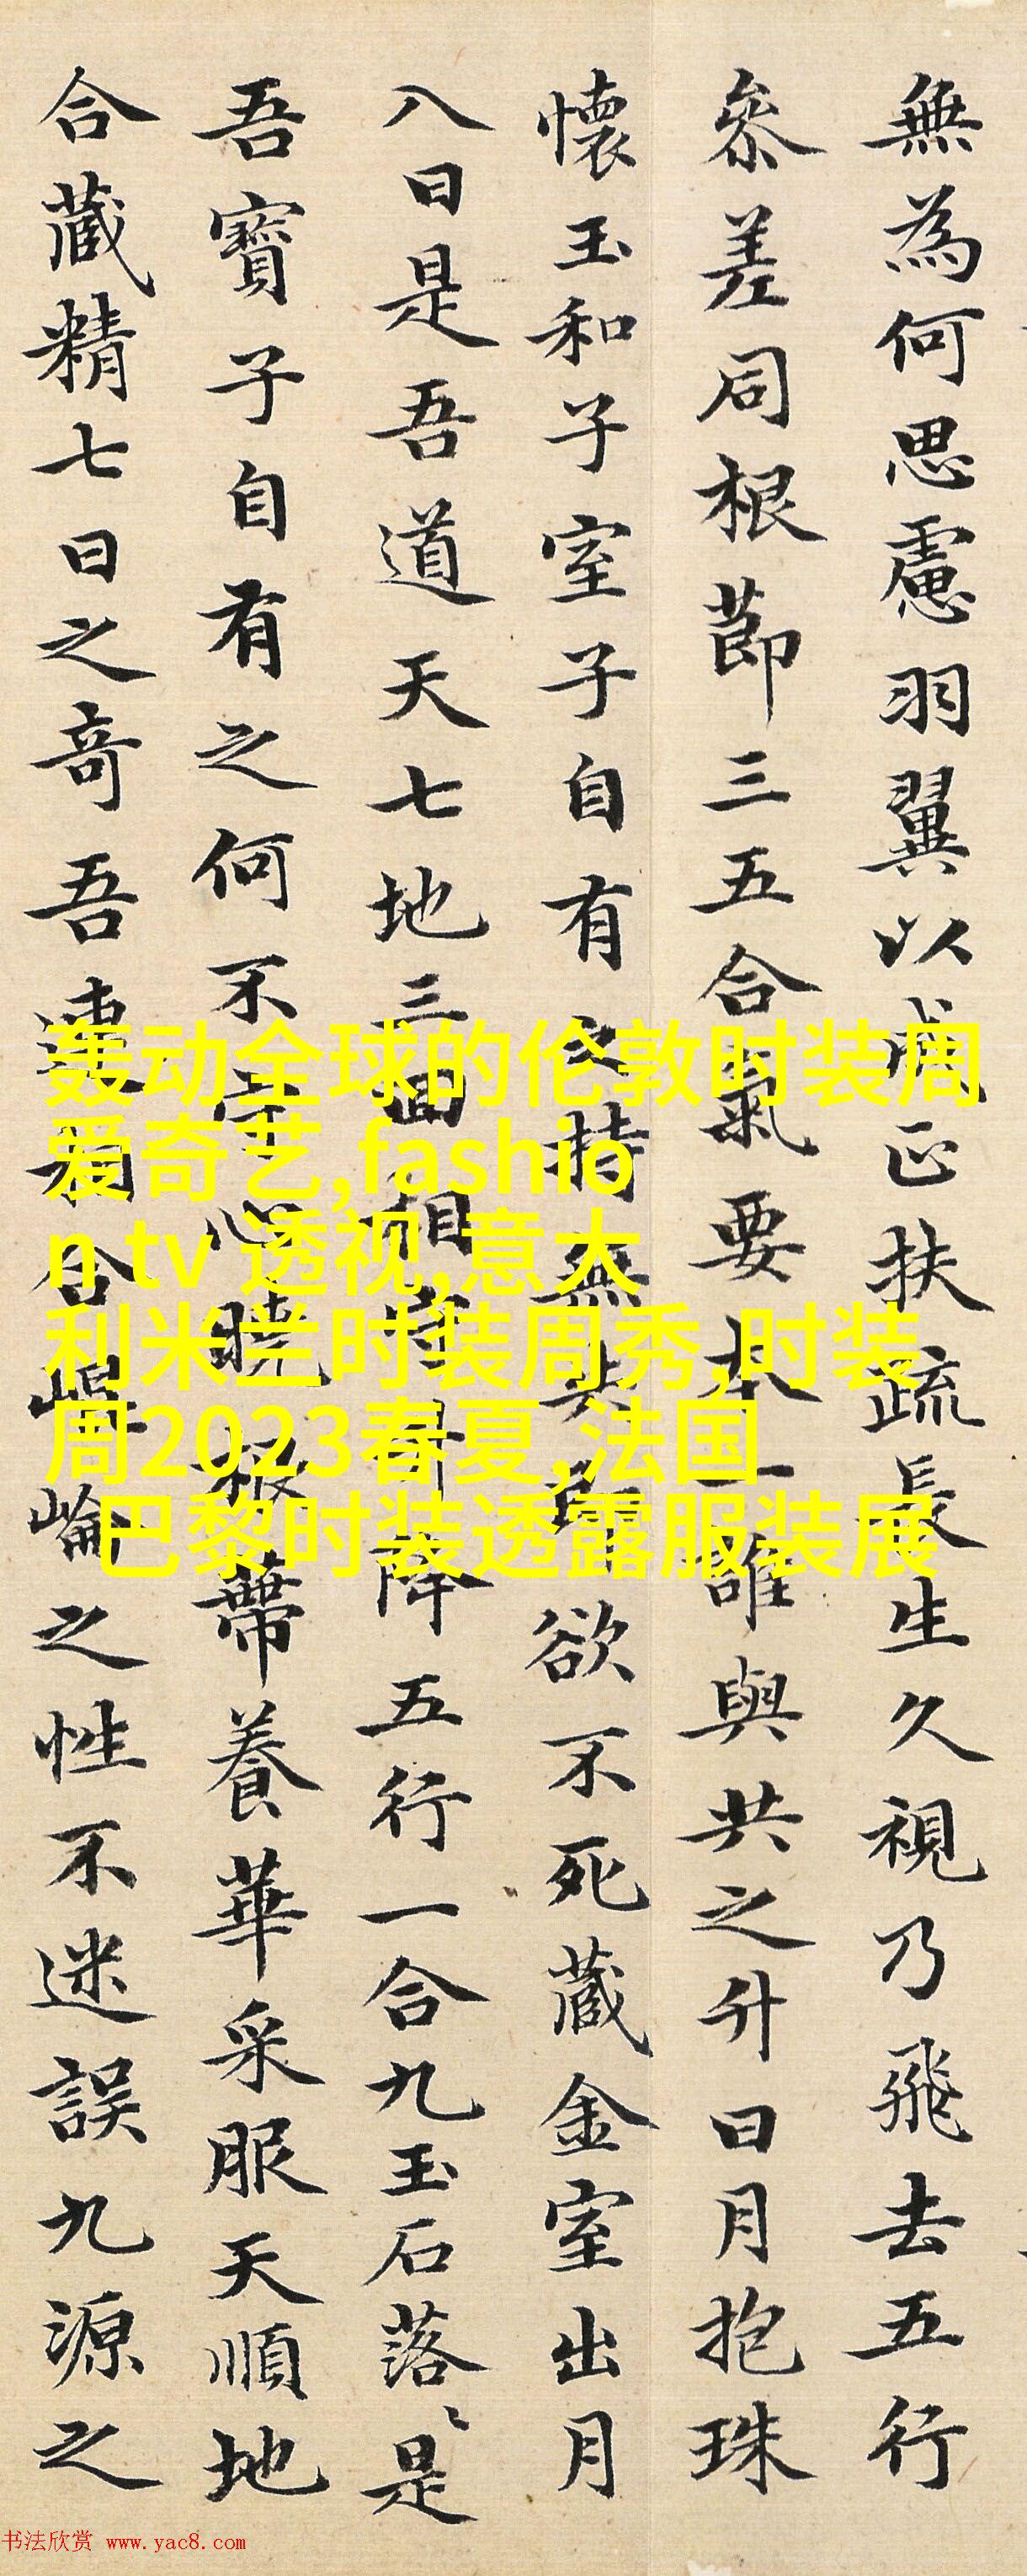 無為何思慮羽翼以成正扶疏長生久視乃飛去五行
參差同根節三五合氣要本一誰與共之升日月抱珠
懷玉和子室子自有之持無失即欲不死藏金室出月
八日是吾道天七地三回相守升降五行一合九玉石落〻是
吾寶子自有之何不守心曉根蔕養華采服天順地
合藏精七日之奇吾連相合崐崘之性不迷誤九源之
轰动全球的伦敦时装周
爱奇艺,fashio
n tv 透视,意大
利米兰时装周秀,时装
周2023春夏,法国
巴黎时装透露服装展
书法欣赏 www.yac8.com